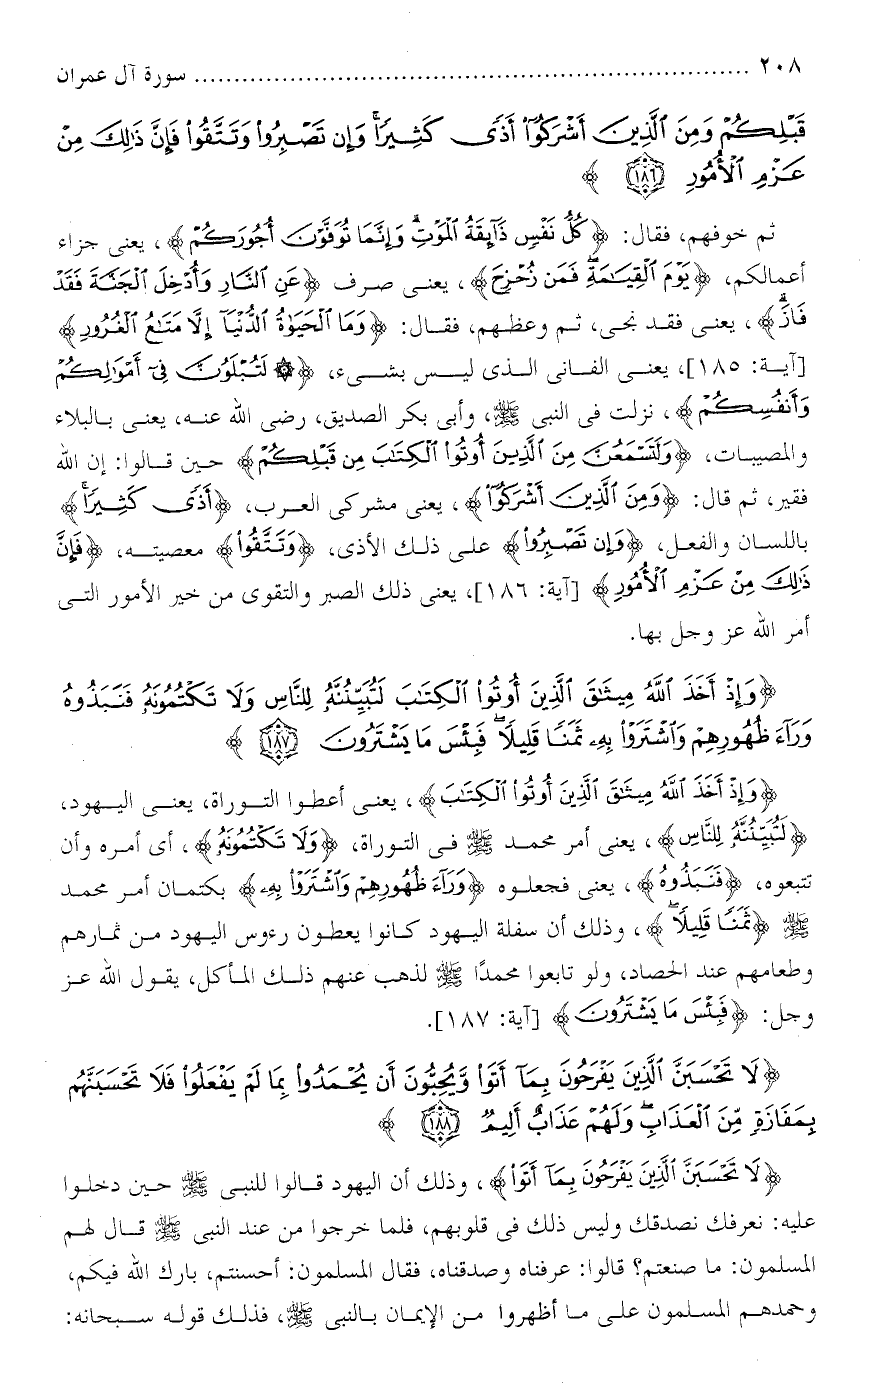 ٢٠٨ ........................................................................ سورة آل عمران
قَبْلِكُمْ وَمِنَ ٱلَّذِينَ أَشْرَكُوٓا۟ أَذًى كَثِيرًا ۚ وَإِن تَصْبِرُوا۟ وَتَتَّقُوا۟ فَإِنَّ ذَٰلِكَ مِنْ
عَزْمِ ٱلْأُمُورِ ١٨٦ ﴾
ثم خوفهم، فقال: ﴿كُلُّ نَفْسٍ ذَآئِقَةُ ٱلْمَوْتِ ۗ وَإِنَّمَا تُوَفَّوْنَ أُجُورَكُمْ﴾، يعنى جزاء
أعمالكم، ﴿يَوْمَ ٱلْقِيَـٰمَةِ ۖ فَمَن زُحْزِحَ﴾، يعنى صرف ﴿عَنِ ٱلنَّارِ وَأُدْخِلَ ٱلْجَنَّةَ فَقَدْ
فَازَ ۗ﴾، يعنى فقد نجى، ثم وعظهم، فقال: ﴿وَمَا ٱلْحَيَوٰةُ ٱلدُّنْيَآ إِلَّا مَتَـٰعُ ٱلْغُرُورِ﴾
[آية: ١٨٥]، يعنى الفانى الذى ليس بشىء، ﴿۞ لَتُبْلَوُنَّ فِىٓ أَمْوَٰلِكُمْ
وَأَنفُسِكُمْ﴾، نزلت فى النبى ﷺ، وأبى بكر الصديق، رضى الله عنه، يعنى بالبلاء
والمصيبات، ﴿وَلَتَسْمَعُنَّ مِنَ ٱلَّذِينَ أُوتُوا۟ ٱلْكِتَـٰبَ مِن قَبْلِكُمْ﴾ حين قالوا: إن الله
فقير، ثم قال: ﴿وَمِنَ ٱلَّذِينَ أَشْرَكُوٓا۟﴾، يعنى مشركى العرب، ﴿أَذًى كَثِيرًا ۚ﴾
باللسان والفعل، ﴿وَإِن تَصْبِرُوا۟﴾ على ذلك الأذى، ﴿وَتَتَّقُوا۟﴾ معصيته، ﴿فَإِنَّ
ذَٰلِكَ مِنْ عَزْمِ ٱلْأُمُورِ﴾ [آية: ١٨٦]، يعنى ذلك الصبر والتقوى من خير الأمور التى
أمر الله عز وجل بها.
﴿وَإِذْ أَخَذَ ٱللَّهُ مِيثَـٰقَ ٱلَّذِينَ أُوتُوا۟ ٱلْكِتَـٰبَ لَتُبَيِّنُنَّهُۥ لِلنَّاسِ وَلَا تَكْتُمُونَهُۥ فَنَبَذُوهُ
وَرَآءَ ظُهُورِهِمْ وَٱشْتَرَوْا۟ بِهِۦ ثَمَنًا قَلِيلًا ۖ فَبِئْسَ مَا يَشْتَرُونَ ١٨٧ ﴾
﴿وَإِذْ أَخَذَ ٱللَّهُ مِيثَـٰقَ ٱلَّذِينَ أُوتُوا۟ ٱلْكِتَـٰبَ﴾، يعنى أعطوا التوراة، يعنى اليهود،
﴿لَتُبَيِّنُنَّهُۥ لِلنَّاسِ﴾، يعنى أمر محمد ﷺ فى التوراة، ﴿وَلَا تَكْتُمُونَهُۥ﴾، أى أمره وأن
تتبعوه، ﴿فَنَبَذُوهُ﴾، يعنى فجعلوه ﴿وَرَآءَ ظُهُورِهِمْ وَٱشْتَرَوْا۟ بِهِۦ﴾ بكتمان أمر محمد
ﷺ ﴿ثَمَنًا قَلِيلًا ۖ﴾، وذلك أن سفلة اليهود كانوا يعطون رءوس اليهود من ثمارهم
وطعامهم عند الحصاد، ولو تابعوا محمدًا ﷺ لذهب عنهم ذلك المأكل، يقول الله عز
وجل: ﴿فَبِئْسَ مَا يَشْتَرُونَ﴾ [آية: ١٨٧].
﴿لَا تَحْسَبَنَّ ٱلَّذِينَ يَفْرَحُونَ بِمَآ أَتَوا۟ وَّيُحِبُّونَ أَن يُحْمَدُوا۟ بِمَا لَمْ يَفْعَلُوا۟ فَلَا تَحْسَبَنَّهُم
بِمَفَازَةٍ مِّنَ ٱلْعَذَابِ ۖ وَلَهُمْ عَذَابٌ أَلِيمٌ ١٨٨ ﴾
﴿لَا تَحْسَبَنَّ ٱلَّذِينَ يَفْرَحُونَ بِمَآ أَتَوا۟﴾، وذلك أن اليهود قالوا للنبى ﷺ حين دخلوا
عليه: نعرفك نصدقك وليس ذلك فى قلوبهم، فلما خرجوا من عند النبى ﷺ قال لهم
المسلمون: ما صنعتم؟ قالوا: عرفناه وصدقناه، فقال المسلمون: أحسنتم، بارك الله فيكم،
وحمدهم المسلمون على ما أظهروا من الإيمان بالنبى ﷺ، فذلك قوله سبحانه: